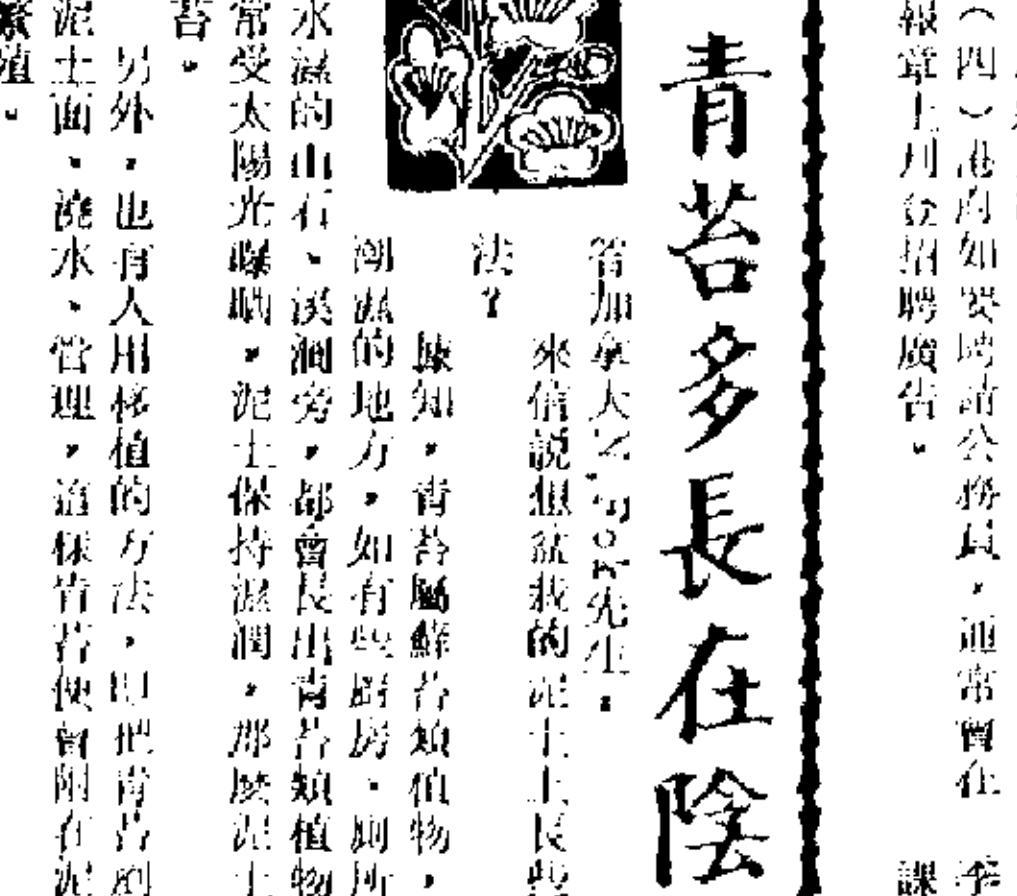 （四）港府如要聘請公務員，通常會在
報章上刊登招聘廣告。
課
青苔多長在陰
答加拿大
先生：
來信說想盆栽的泥土上長些
法？
據知，青苔屬蘚苔類植物，
潮濕的地方，如有些廚房、廁所
水濕的山石、溪澗旁，都會長出青苔類植物
常受太陽光曝晒，泥土保持濕潤，那麼泥土
苔。
另外，也有人用移植的方法，即把青苔刮
泥土面、澆水、管理，這樣青苔便會附在泥
繁殖。